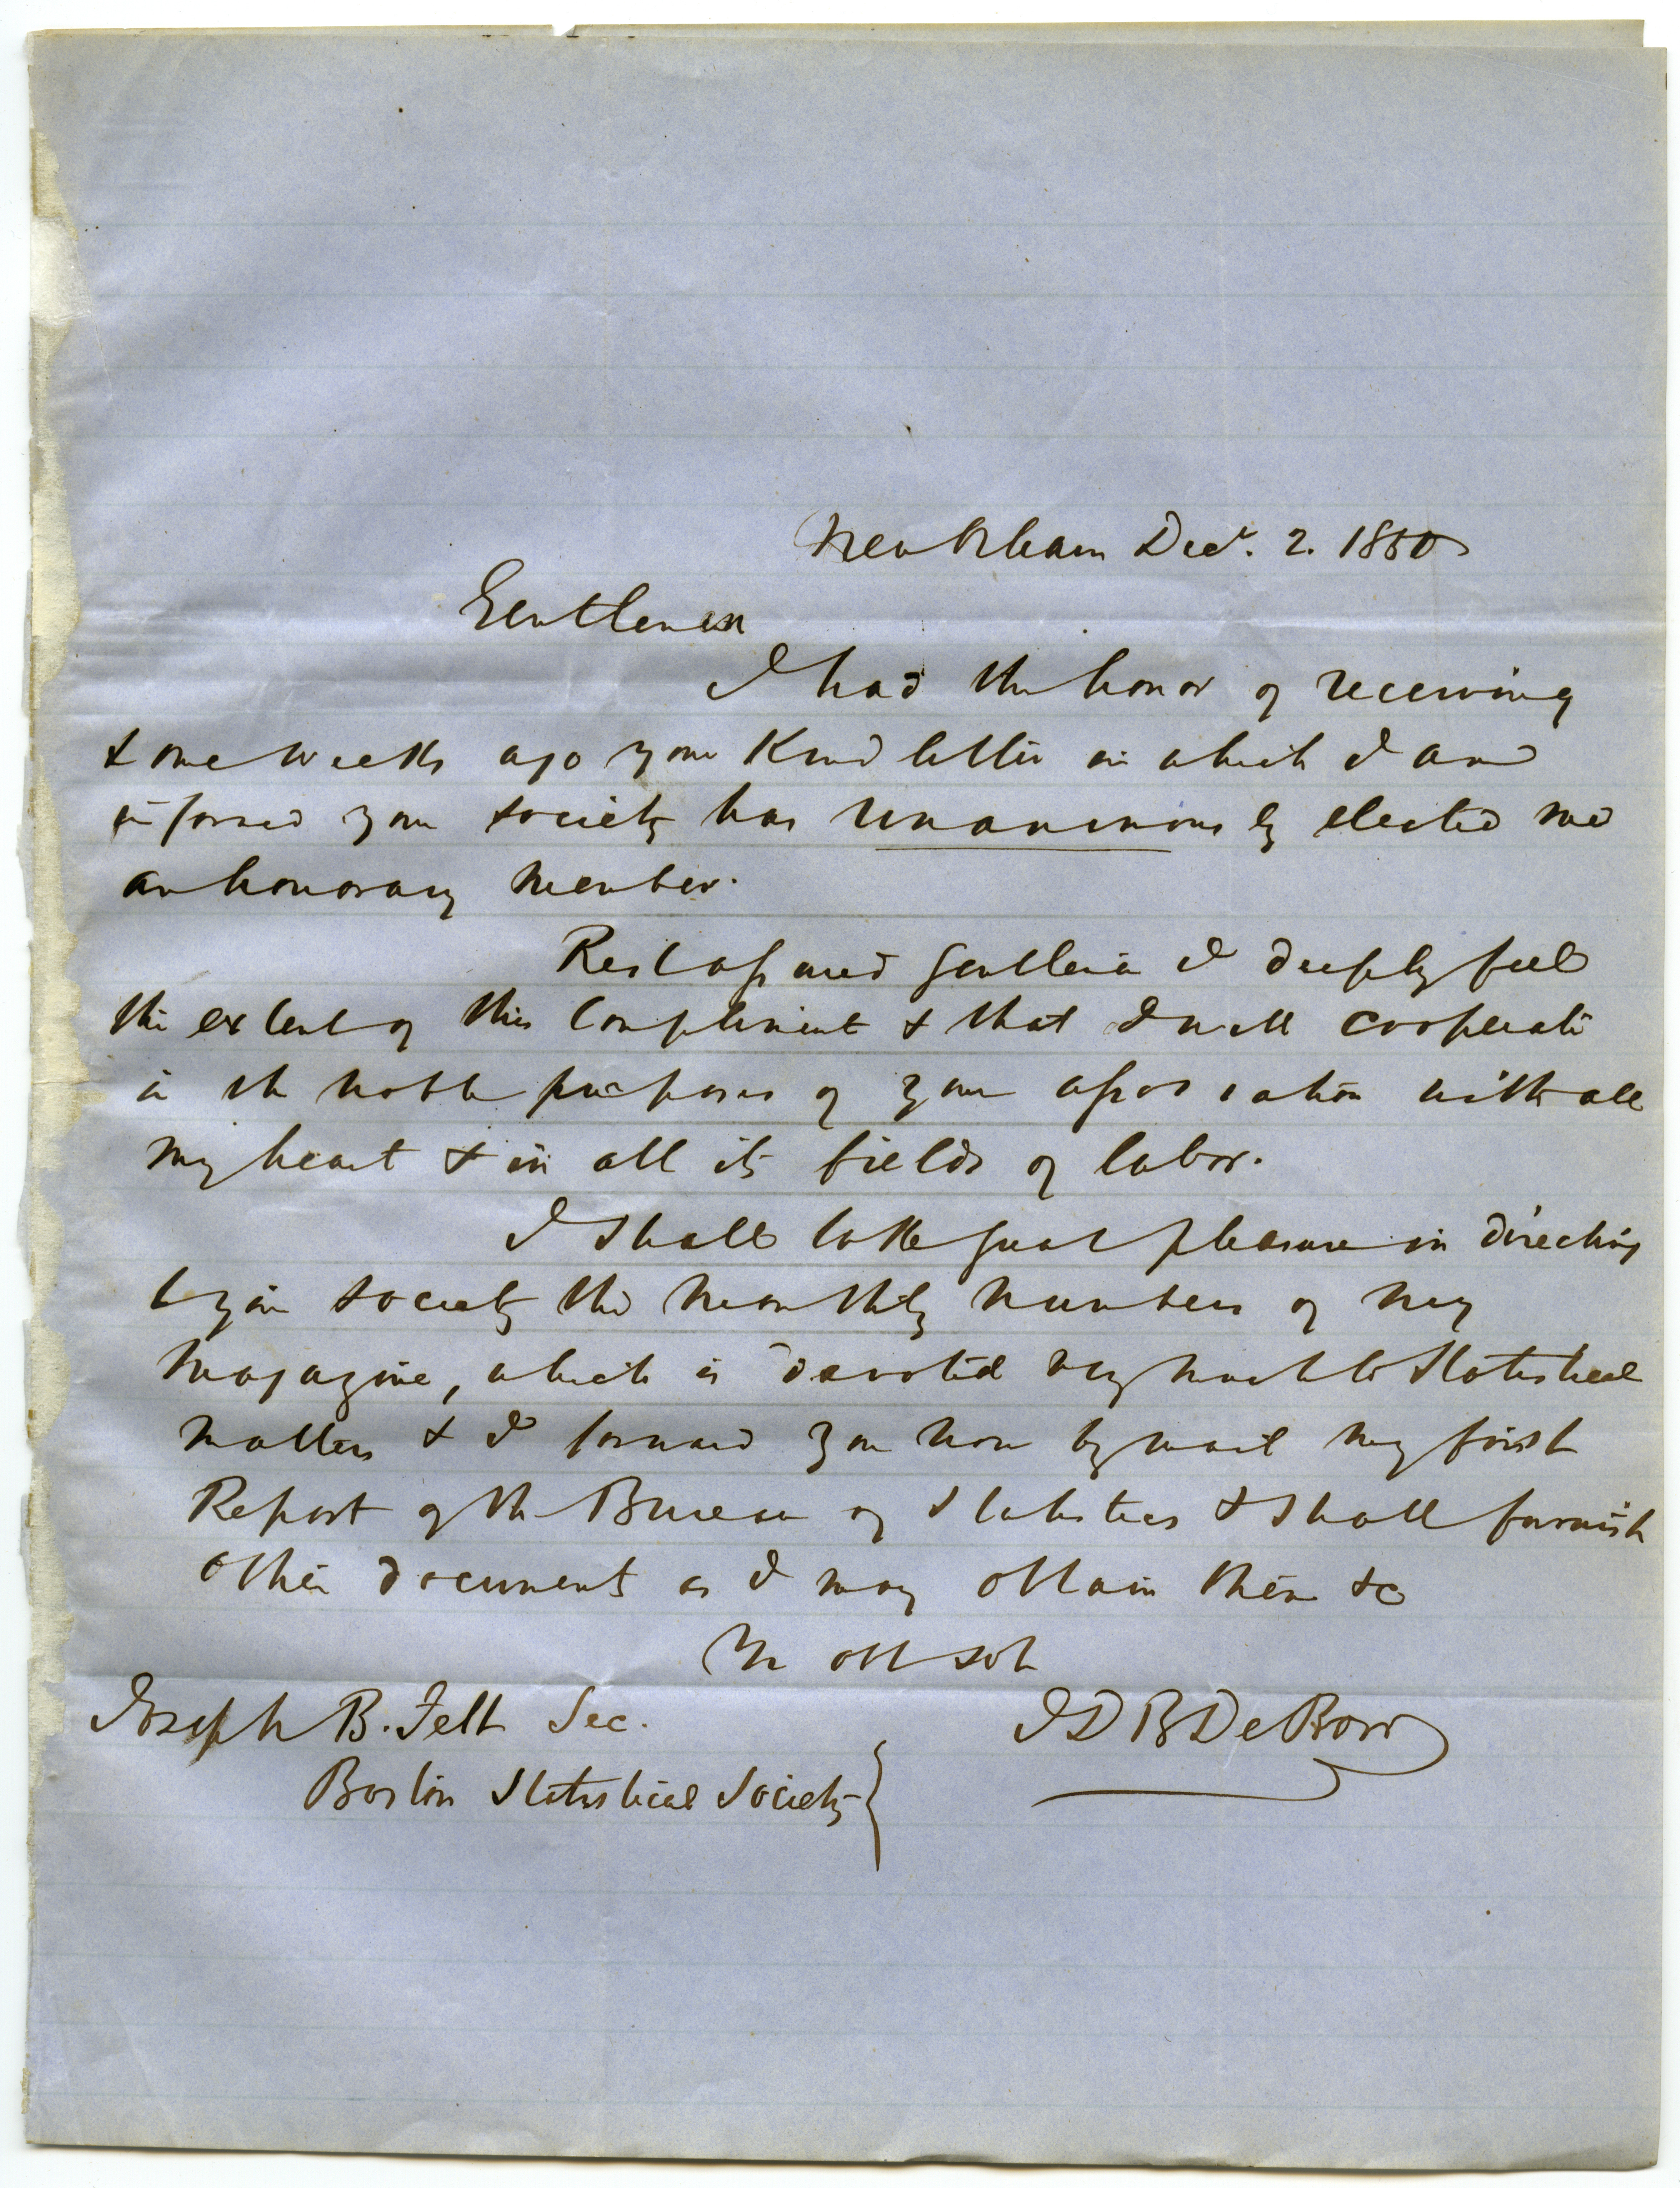 New Orleans Decr. 2. 1850
Gentlemen
I had the honor of receiving
some weeks ago your kind letter in which I am
informed your society has unanimously elected me
an honorary member.
Rest assured gentlemen I deeply feel
the extent of this compliment & that I will cooperate
in the noble purposes of your association with all
my heart & in all its fields of labor.
I shall take great pleasure in directing
to your society the monthly numbers of my
magazine, which is devoted very much to statistical
matters & I forward you now by mail my first
Report of the Bureau of Statistics & shall furnish
other documents as I may obtain them &c
Yr obt svt
J D B De Bow
Joseph B. Felt Sec.
Boston Statistical Society